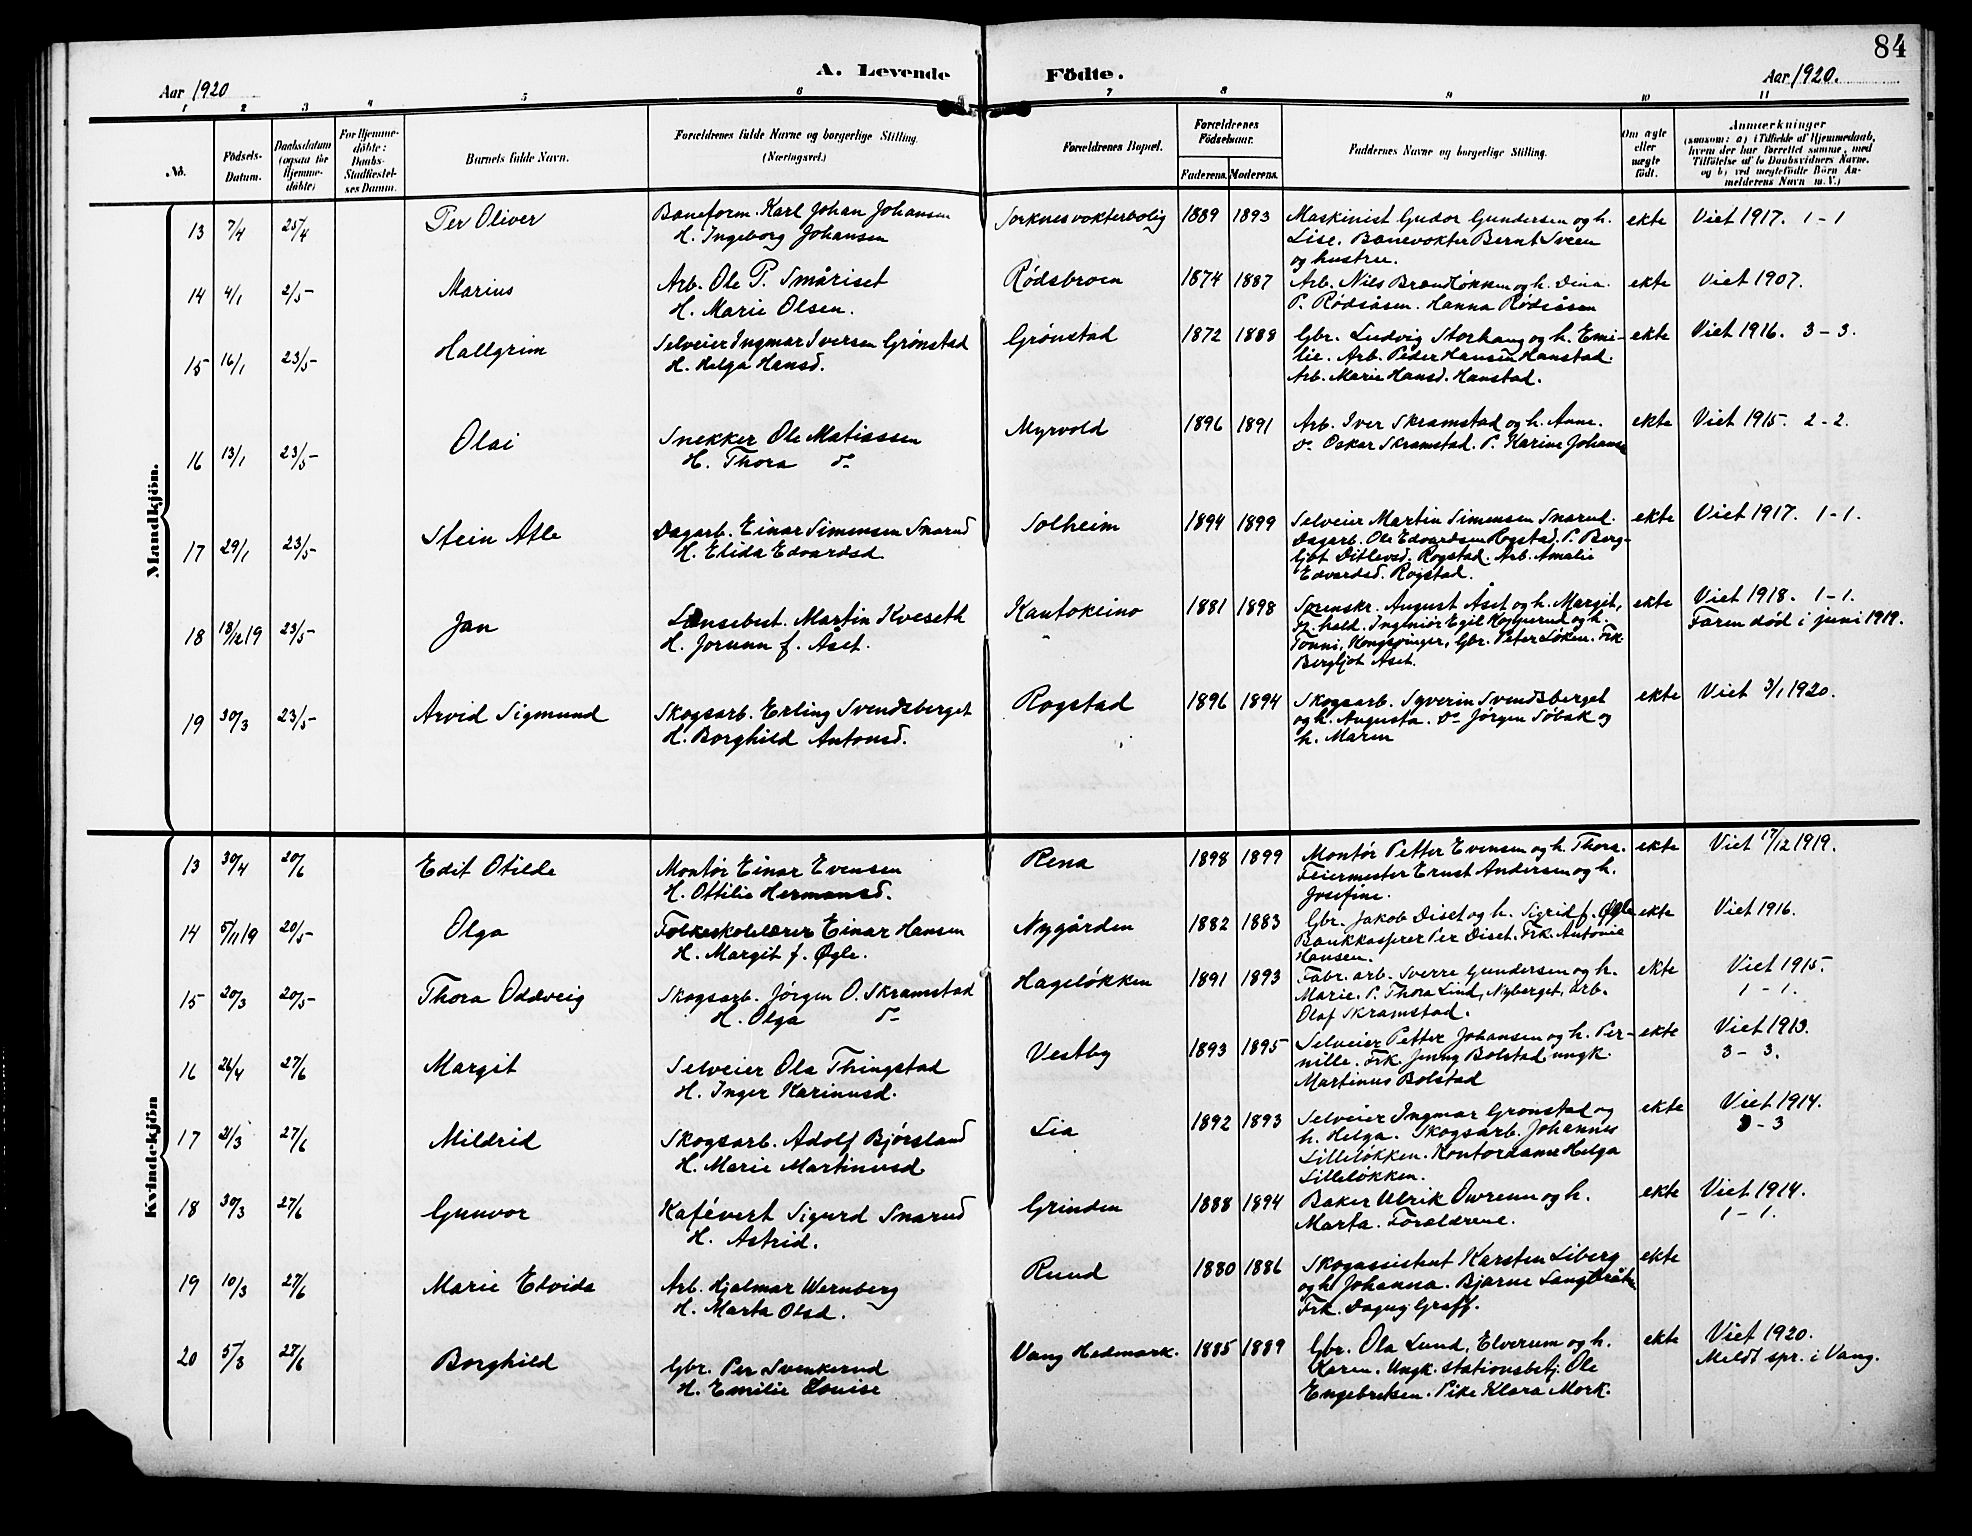 84
A. Levende Födte.
Aar 1920
Aar 1920.
1 2 3 4 5 6 7 8 9 10 11
No.
Födsels-Datum.
Daabsdatum (ogsaa for Hjemme-döbte)
For Hjemme-döbte: Daabs-Stadfæstel-ses Datum.
Barnets fulde Navn.
Forældrenes fulde Navne og borgerlige Stilling. (Næringsvei.)
Forældrenes Bopæl.
Forældrenes Födselsaar.
Faderens. Moderens.
Faddernes Navne og borgerlige Stilling.
Om ægte eller uægte födt.
Anmærkninger (saasom: a) i Tilfælde af Hjemmedaab, hvem der har forrettet samme, med Tilföielse af to Daabsvidners Navne, og b) ved uægtefödte Börn Anmelderens Navn m. V.)
Mandkjön.
13 7/4 25/4 Per Oliver Baneform. Karl Johan Johansen Sorknes vokterbolig 1889 1893 Maskinist Gudor Gundersen og h. ekte Viet 1917. 1-1
H. Ingeborg Johansen Lise. Banevokter Bernt Sveen
og hustru.
14 4/1 2/5 Marius Arb. Ole P. Småriset Rødsbroen 1874 1887 Arb. Nils Brændløkken og h. Dina. ekte Viet 1907.
H. Marie Olsen. P. Rødsåsen. Hanna Rødsåsen
15 16/1 23/5 Hallgrim Selveier Ingmar Iversen Grønstad Grønstad 1872 1888 Gbr. Ludvig Storhaug og h. Emi- ekte Viet 1916. 3-3.
H. Helga Hansd. lie. Arb. Peder Hansen Hanstad.
Arb. Marie Hansd. Hanstad.
16 13/1 23/5 Olai Snekker Ole Matiassen Myrvold 1896 1891 Arb. Iver Skramstad og h. Anne. ekte Viet 1915. 2-2.
H. Thora do do Oskar Skramstad. P. Karine Johans
17 29/1 23/5 Stein Atle Dagarb. Einar Simensen Snarud Solheim 1894 1899 Selveier Martin Simensen Snarud. ekte Viet 1917. 1-1.
H. Elida Edvardsd Dagarb. Ole Edvardsen Rogstad. P. Berg-
ljot Ditlevsd. Rogstad. Arb. Amalie
Edvardsd. Rogstad.
18 18/12 19 23/5 Jan Lensebest. Martin Kveseth Kautokeino 1881 1898 Sorenskr. August Åset og h. Margit, ekte Viet 1918. 1-1.
H. Jorunn f. Åset. Ingeniør Egil Kopperud og h. Faren død i juni 1919.
Tonni, Kongsvinger, Gbr. Peter Løken. Frk
Bergljot Åset.
19 30/3 23/5 Arvid Sigmund Skogsarb. Erling Svendsberget Rogstad 1896 1894 Skogsarb. Syverin Svendsberget ekte Viet 3/1 1920.
H. Borghild Antonsd. og h. Augusta. do Jørgen Søbak og
h. Maren
Kvindekjön
13 30/4 20/6 Edit Otilde Montør Einar Evensen Rena 1898 1899 Montør Petter Evensen og h. Thora. ekte Viet 17/12 1919.
H. Ottilie Hermansd. Feiermester Ernst Andersen og h.
Josefine.
14 5/11 19 20/5 Olga Folkeskolelærer Einar Hansen Nygården 1882 1883 Gbr. Jakob Diset og h. Sigrid f. Øgle ekte Viet 1916.
H. Margit f. Øgle. Bankkasserer Per Diset. Frk. Antonie
Hansen.
15 20/3 20/5 Thora Oddveig Skogsarb. Jørgen O. Skramstad Hageløkken 1891 1893 Fabr. arb. Sverre Gundersen og h. ekte Viet 1915.
H. Olga do Marie. P. Thora Lind, Nyberget, arb. 1-1.
Olaf Skramstad.
16 26/4 27/6 Margit Selveier Ola Thingstad Vestby 1893 1895 Selveier Petter Johansen og h. Per- ekte Viet 1913.
H. Inger Karinusd. nille. Frk. Jenny Bolstad ungk. 3-3.
Martinus Bolstad
17 21/3 27/6 Mildrid Skogsarb. Adolf Bjørsland Lia 1892 1893 Selveier Ingmar Grønstad og ekte Viet 1914.
H. Marie Martinusd h. Helga. Skogsarb. Johannes 3-3
Lilleløkken. Kontordame Helga
Lilleløkken.
18 30/3 27/6 Gunvor Kafévert Sigurd Snarud Grinden 1888 1894 Baker Ulrik Owrenn og h. ekte Viet 1914.
H. Astrid. Marta. Forældrene. 1-1.
19 10/3 27/6 Marie Elvida Arb. Hjalmar Wernberg Ruud 1880 1886 Skogassistent Karsten Liberg ekte
H. Marta Olsd. og h Johanna. Bjarne Langbråten
Frk. Dagny Graff.
20 5/3 27/6 Borghild Gbr. Per Svenkerud Vang Hedmark. 1885 1889 Gbr. Ola Lund, Elverum og h. ekte Viet 1920.
H. Emilie Louise Karen. Ungk. stationsbetj. Ole Meldt spr. i Vang.
Engebretsen. Pike Klara Mork.